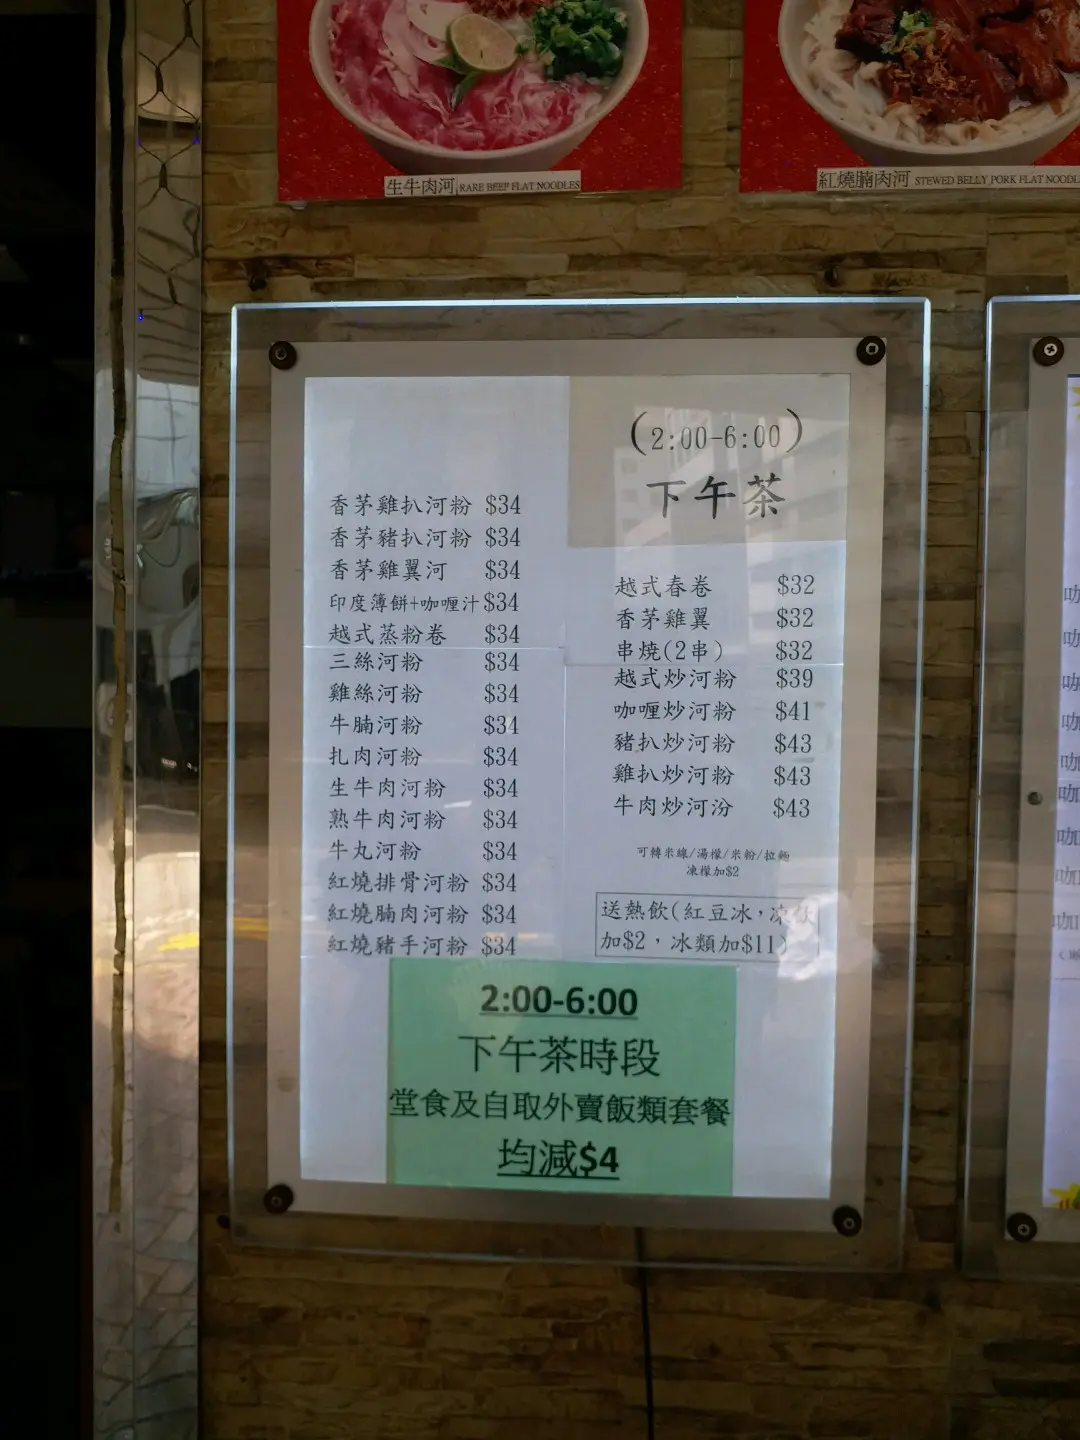 生牛肉河 RARE BEEF FLAT NOODLES
紅燒腩肉河 STEWED BELLY PORK FLAT NOODL
香茅雞扒河粉 $34
香茅豬扒河粉 $34
香茅雞翼河 $34
印度薄餅+咖喱汁 $34
越式蒸粉卷 $34
三絲河粉 $34
雞絲河粉 $34
牛腩河粉 $34
扎肉河粉 $34
生牛肉河粉 $34
熟牛肉河粉 $34
牛丸河粉 $34
紅燒排骨河粉 $34
紅燒腩肉河粉 $34
紅燒豬手河粉 $34
(2:00-6:00)
下午茶
越式春卷 $32
香茅雞翼 $32
串燒(2串) $32
越式炒河粉 $39
咖喱炒河粉 $41
豬扒炒河粉 $43
雞扒炒河粉 $43
牛肉炒河汾 $43
可轉米線/湯檬/米粉/拉麵
凍檬加$2
送熱飲(紅豆冰，凍飲
加$2，冰類加$11)
2:00-6:00
下午茶時段
堂食及自取外賣飯類套餐
均減$4